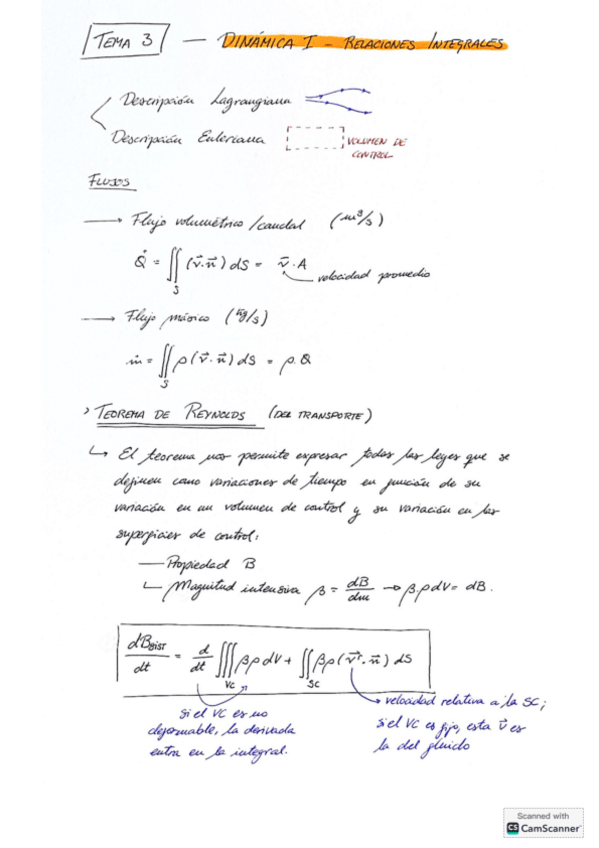 TEMA 3 — DINÁMICA I - RELACIONES INTEGRALES
Descripción Lagrangiana
Descripción Euleriana
VOLUMEN DE
CONTROL
FLUJOS
→ Flujo volumétrico/caudal (m³/s)
Q̇ = ∬_S (v⃗·n⃗) dS = v̄·A
velocidad promedio
→ Flujo másico (kg/s)
ṁ = ∬_S ρ(v⃗·n⃗) dS = ρ·Q
› TEOREMA DE REYNOLDS (DEL TRANSPORTE)
↳ El teorema nos permite expresar todas las leyes que se
definen como variaciones de tiempo en función de su
variación en un volumen de control y su variación en las
superficies de control:
— Propiedad B
↳ Magnitud intensiva β = dB/dm → β·ρdV = dB.
dBsist/dt = d/dt ∭_VC βρdV + ∬_SC βρ(v⃗ʳ·n⃗) dS
si el VC es no
deformable, la derivada
entra en la integral.
velocidad relativa a la SC;
si el VC es fijo, esta v⃗ es
la del fluido
Scanned with
CS CamScanner